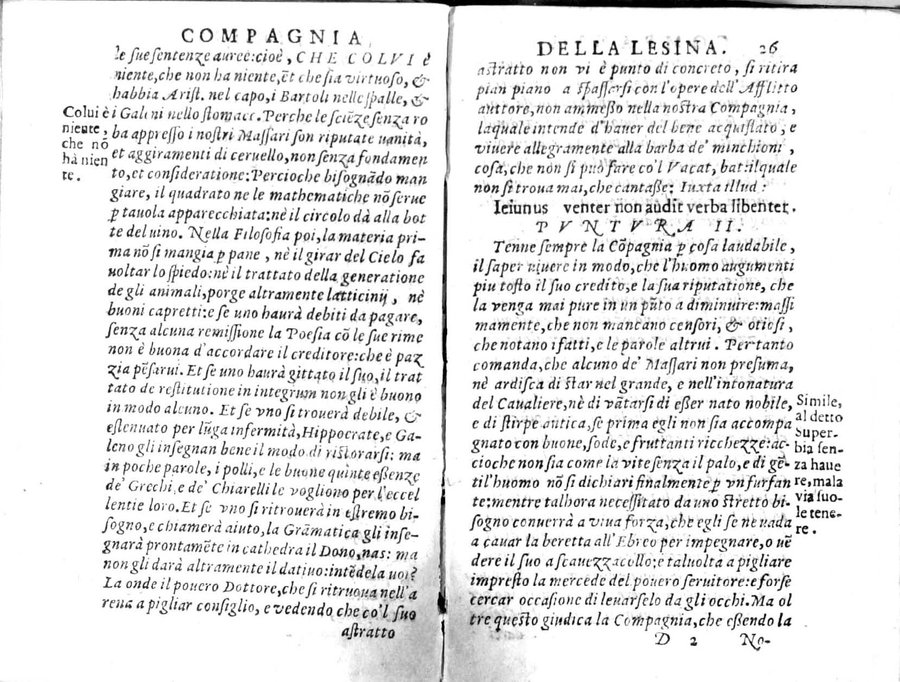 COMPAGNIA
le sue sentenze auree: cioè, CHE COLVI è
niente, che non ha niente, ēt che sia virtuoso, &
habbia Arist. nel capo, i Bartoli nelle spalle, &
i Galeni nello stomaco. Perche le sciēze senza ro
ba appresso i nostri Massari son riputate uanità,
et aggiramenti di ceruello, non senza fondamen
to, et consideratione: Percioche bisognādo man
giare, il quadrato ne le mathematiche nō serue
p tauola apparecchiata: nè il circolo dà alla bot
te del uino. Nella Filosofia poi, la materia pri-
ma nō si mangia p pane, nè il girar del Cielo fa
uoltar lo spiedo: nè il trattato della generatione
de gli animali, porge altramente latticinij, nè
buoni capretti: e se uno haurà debiti da pagare,
senza alcuna remissione la Poesia cō le sue rime
non è buona d'accordare il creditore: che è paz
zia pēsarui. Et se uno haurà gittato il suo, il trat
tato de restitutione in integrum non gli è buono
in modo alcuno. Et se vno si trouerà debile, &
estenuato per lūga infermità, Hippocrate, e Ga-
leno gli insegnan bene il modo di ristorarsi: ma
in poche parole, i polli, e le buone quinte essenze
de' Grechi, e de' Chiarelli le vogliono per l'eccel
lentie loro. Et se vno si ritrouerà in estremo bi-
sogno, e chiamerà aiuto, la Grāmatica gli inse-
gnarà prontamēte in cathedra il Dono, nas: ma
non gli darà altramente il datiuo: intēdela uoi?
La onde il pouero Dottore, che si ritruoua nell'a
rena a pigliar consiglio, e vedendo che co'l suo
astratto
Colui è
niente,
che nō
hà nien
te.
DELLA LESINA. 26
astratto non vi è punto di concreto, si ritira
pian piano a spassarsi con l'opere dell'Afflitto
auttore, non ammesso nella nostra Compagnia,
laquale intende d'hauer del bene acquistato, e
viuere allegramente alla barba de' minchioni,
cosa, che non si può fare co'l Vacat, bat: ilquale
non si troua mai, che cantasse: Iuxta illud:
Ieiunus venter non audit verba libenter.
PVNTVRA II.
Tenne sempre la Cōpagnia p cosa laudabile,
il saper uiuere in modo, che l'huomo augumenti
piu tosto il suo credito, e la sua riputatione, che
la venga mai pure in un pūto a diminuire: massi
mamente, che non mancano censori, & otiosi,
che notano i fatti, e le parole altrui. Pertanto
comanda, che alcuno de' Massari non presuma,
nè ardisca di star nel grande, e nell'intonatura
del Caualiere, nè di vātarsi di esser nato nobile,
e di stirpe antica, se prima egli non sia accompa
gnato con buone, sode, e fruttanti ricchezze: ac-
cioche non sia come la vite senza il palo, e di gē-
til'huomo nō si dichiari finalmente p vn furfan
te: mentre talhora necessitato da uno stretto bi-
sogno conuerrà a viua forza, che egli se ne uada
a cauar la beretta all'Ebreo per impegnare, o uē
dere il suo a scauezzacollo: e taluolta a pigliare
impresto la mercede del pouero seruitore: e forse
cercar occasione di leuarselo da gli occhi. Ma ol
tre questo giudica la Compagnia, che essendo la
D 2 No-
Simile,
al detto
Super-
bia sen-
za haue
re, mala
via suo-
le tene-
re.